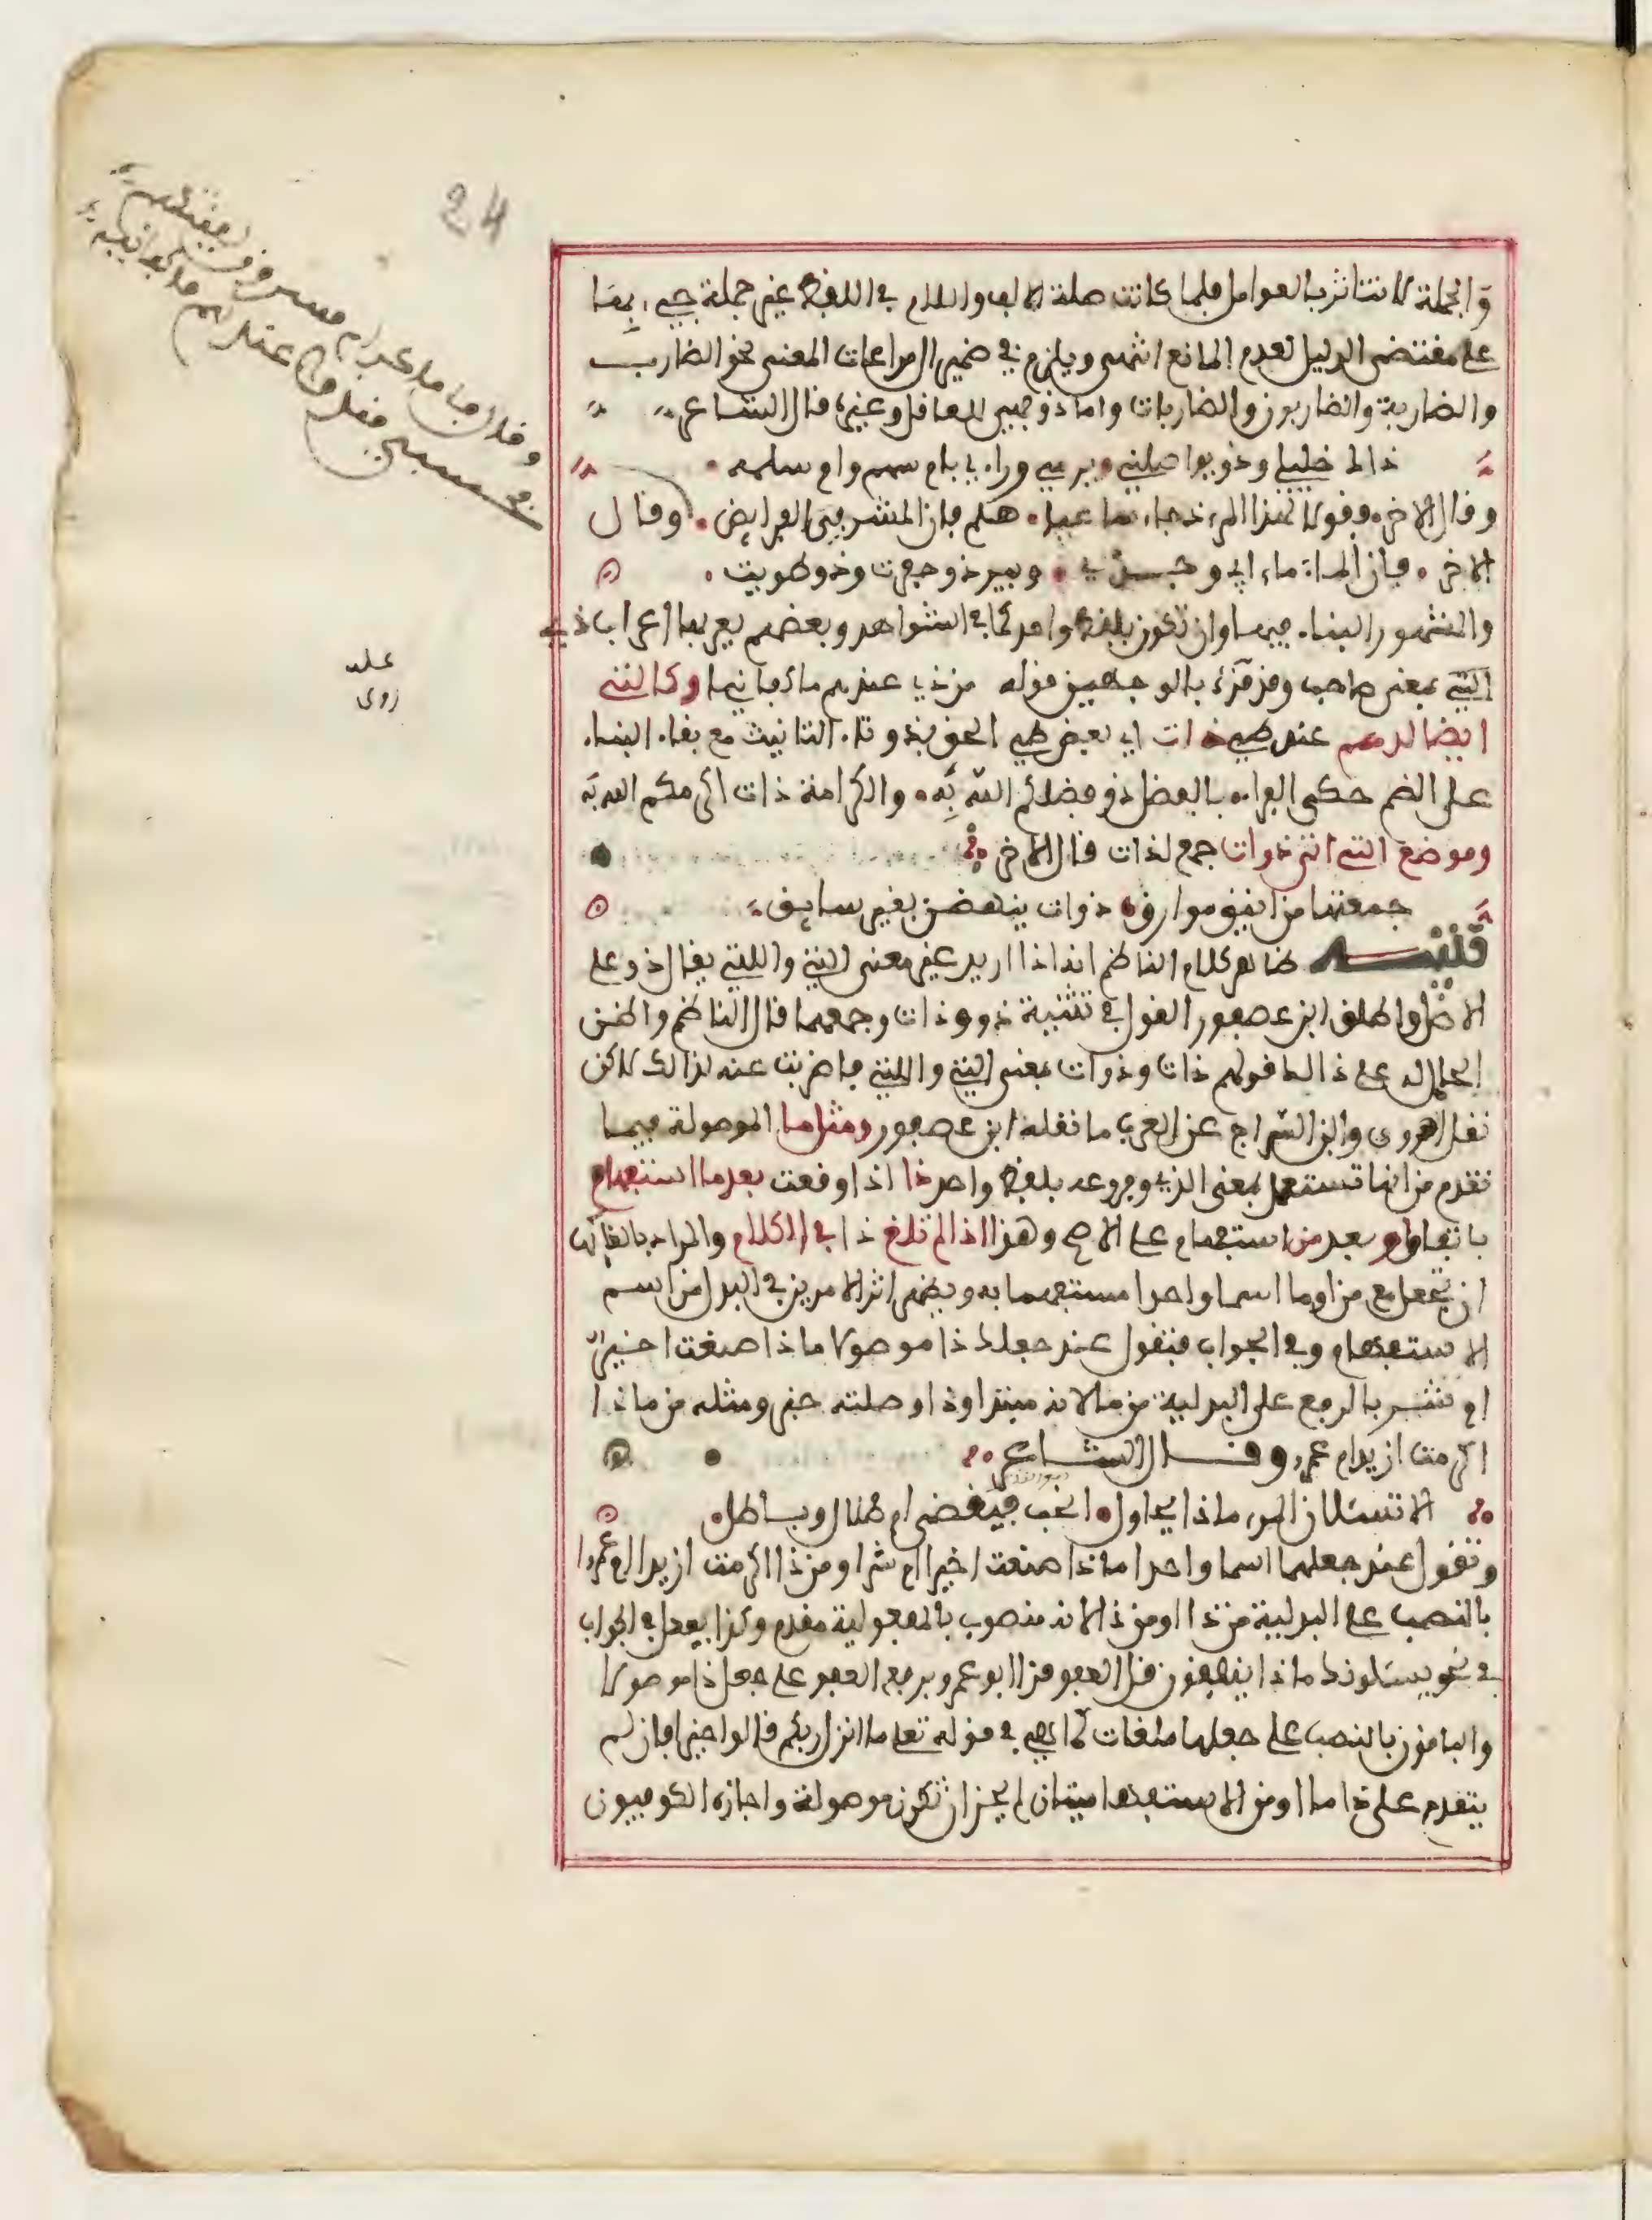 24
وقال اما كرام موسرون لقيتهم
فحسبي من ذي عندهم ما كفانيا
على
روى
والجملة لا تتاثر بالعوامل فلما كانت صلة الالف واللام في اللفظ غير جملة جيء بها
على مقتضى الدليل لعدم المانع انتهى ويلزم في ضمير ال مراعات المعنى نحو الضارب
والضاربة والضاربون والضاربات واما ذو فهي للعاقل وغيره قال الشاعر
ذاك خليلي وذو يواصلني يرمي وراءي بامسهم وامسلمه
وقال الاخر فقولا لهذا المرء ذو جاء ساعيا هلم فان المشرفي الفرايض وقال
الاخر فان الماء ماء ابي وجدي وبيري ذو حفرت وذو طويت
والمشهور البناء فيها وان تكون بلفظ واحد كما في الشواهد وبعضهم يعربها اعراب ذي
التي بمعنى صاحب وقد قرئ بالوجهين قوله من ذي عندهم ما كفانيا وكالتي
ايضا لديهم عند طيي ذات اي بعض طيي الحق بذو تاء التانيث مع بقاء البناء
على الضم حكى الفراء بالفضل ذو فضلكم الله به والكرامة ذات اكرمكم الله به
وموضع التي اتى ذوات جمع لذات قال الاخر
جمعتها من اينق موارق ذوات ينهضن بغير سايق
تنبيه ظاهر كلام الناظم انه اذا اريد غير معنى التي واللتي يقال ذو على
الاصل واطلق ابن عصفور القول في تثنية ذو وذات وجمعهما قال الناظم واظن
الحامل له على ذالك قولهم ذات وذوات بمعنى التي واللتي فاضربت عنه لذالك لاكن
نقل الهروي وابن السراج عن العرب ما نقله ابن عصفور ومثل ما الموصولة فيما
تقدم من انها تستعمل بمعنى الذي وفروعه بلفظ واحد ذا اذا وقعت بعد ما استفهام
باتفاق او بعد من استفهام على الاصح وهذا اذا لم تلغ ذا في الكلام والمراد بالغائها
ان تجعل مع من او ما اسما واحدا مستفهما به ويظهر اثر الامرين في البدل من اسم
الاستفهام وفي الجواب فتقول عند جعلك ذا موصولا ماذا صنعت اخير
ام شر بالرفع على البدلية من ما لانه مبتدا وذا وصلته خبر ومثله من ماذا
اكرمت ازيد ام عمر وقال الشاعر
الا تسئلان المرء ماذا يحاول انحب فيقضى ام ظلال وباطل
وتقول عند جعلهما اسما واحدا ماذا صنعت اخيرا ام شرا ومن ذا اكرمت ازيدا ام عمروا
بالنصب على البدلية من ذا او من ذا لانه منصوب بالمفعولية مقدم وكذا يفعل في الجواب
في نحو يسئلونك ماذا ينفقون قل العفو قرا ابو عمرو برفع العفو على جعل ذا موصولا
والباقون بالنصب على جعلها ملغات كما هي في قوله تعلى ماذا انزل ربكم قالوا خيرا فان لم
يتقدم على ذا ما او من الاستفهاميتان لم يجز ان تكون موصولة واجازه الكوفيون